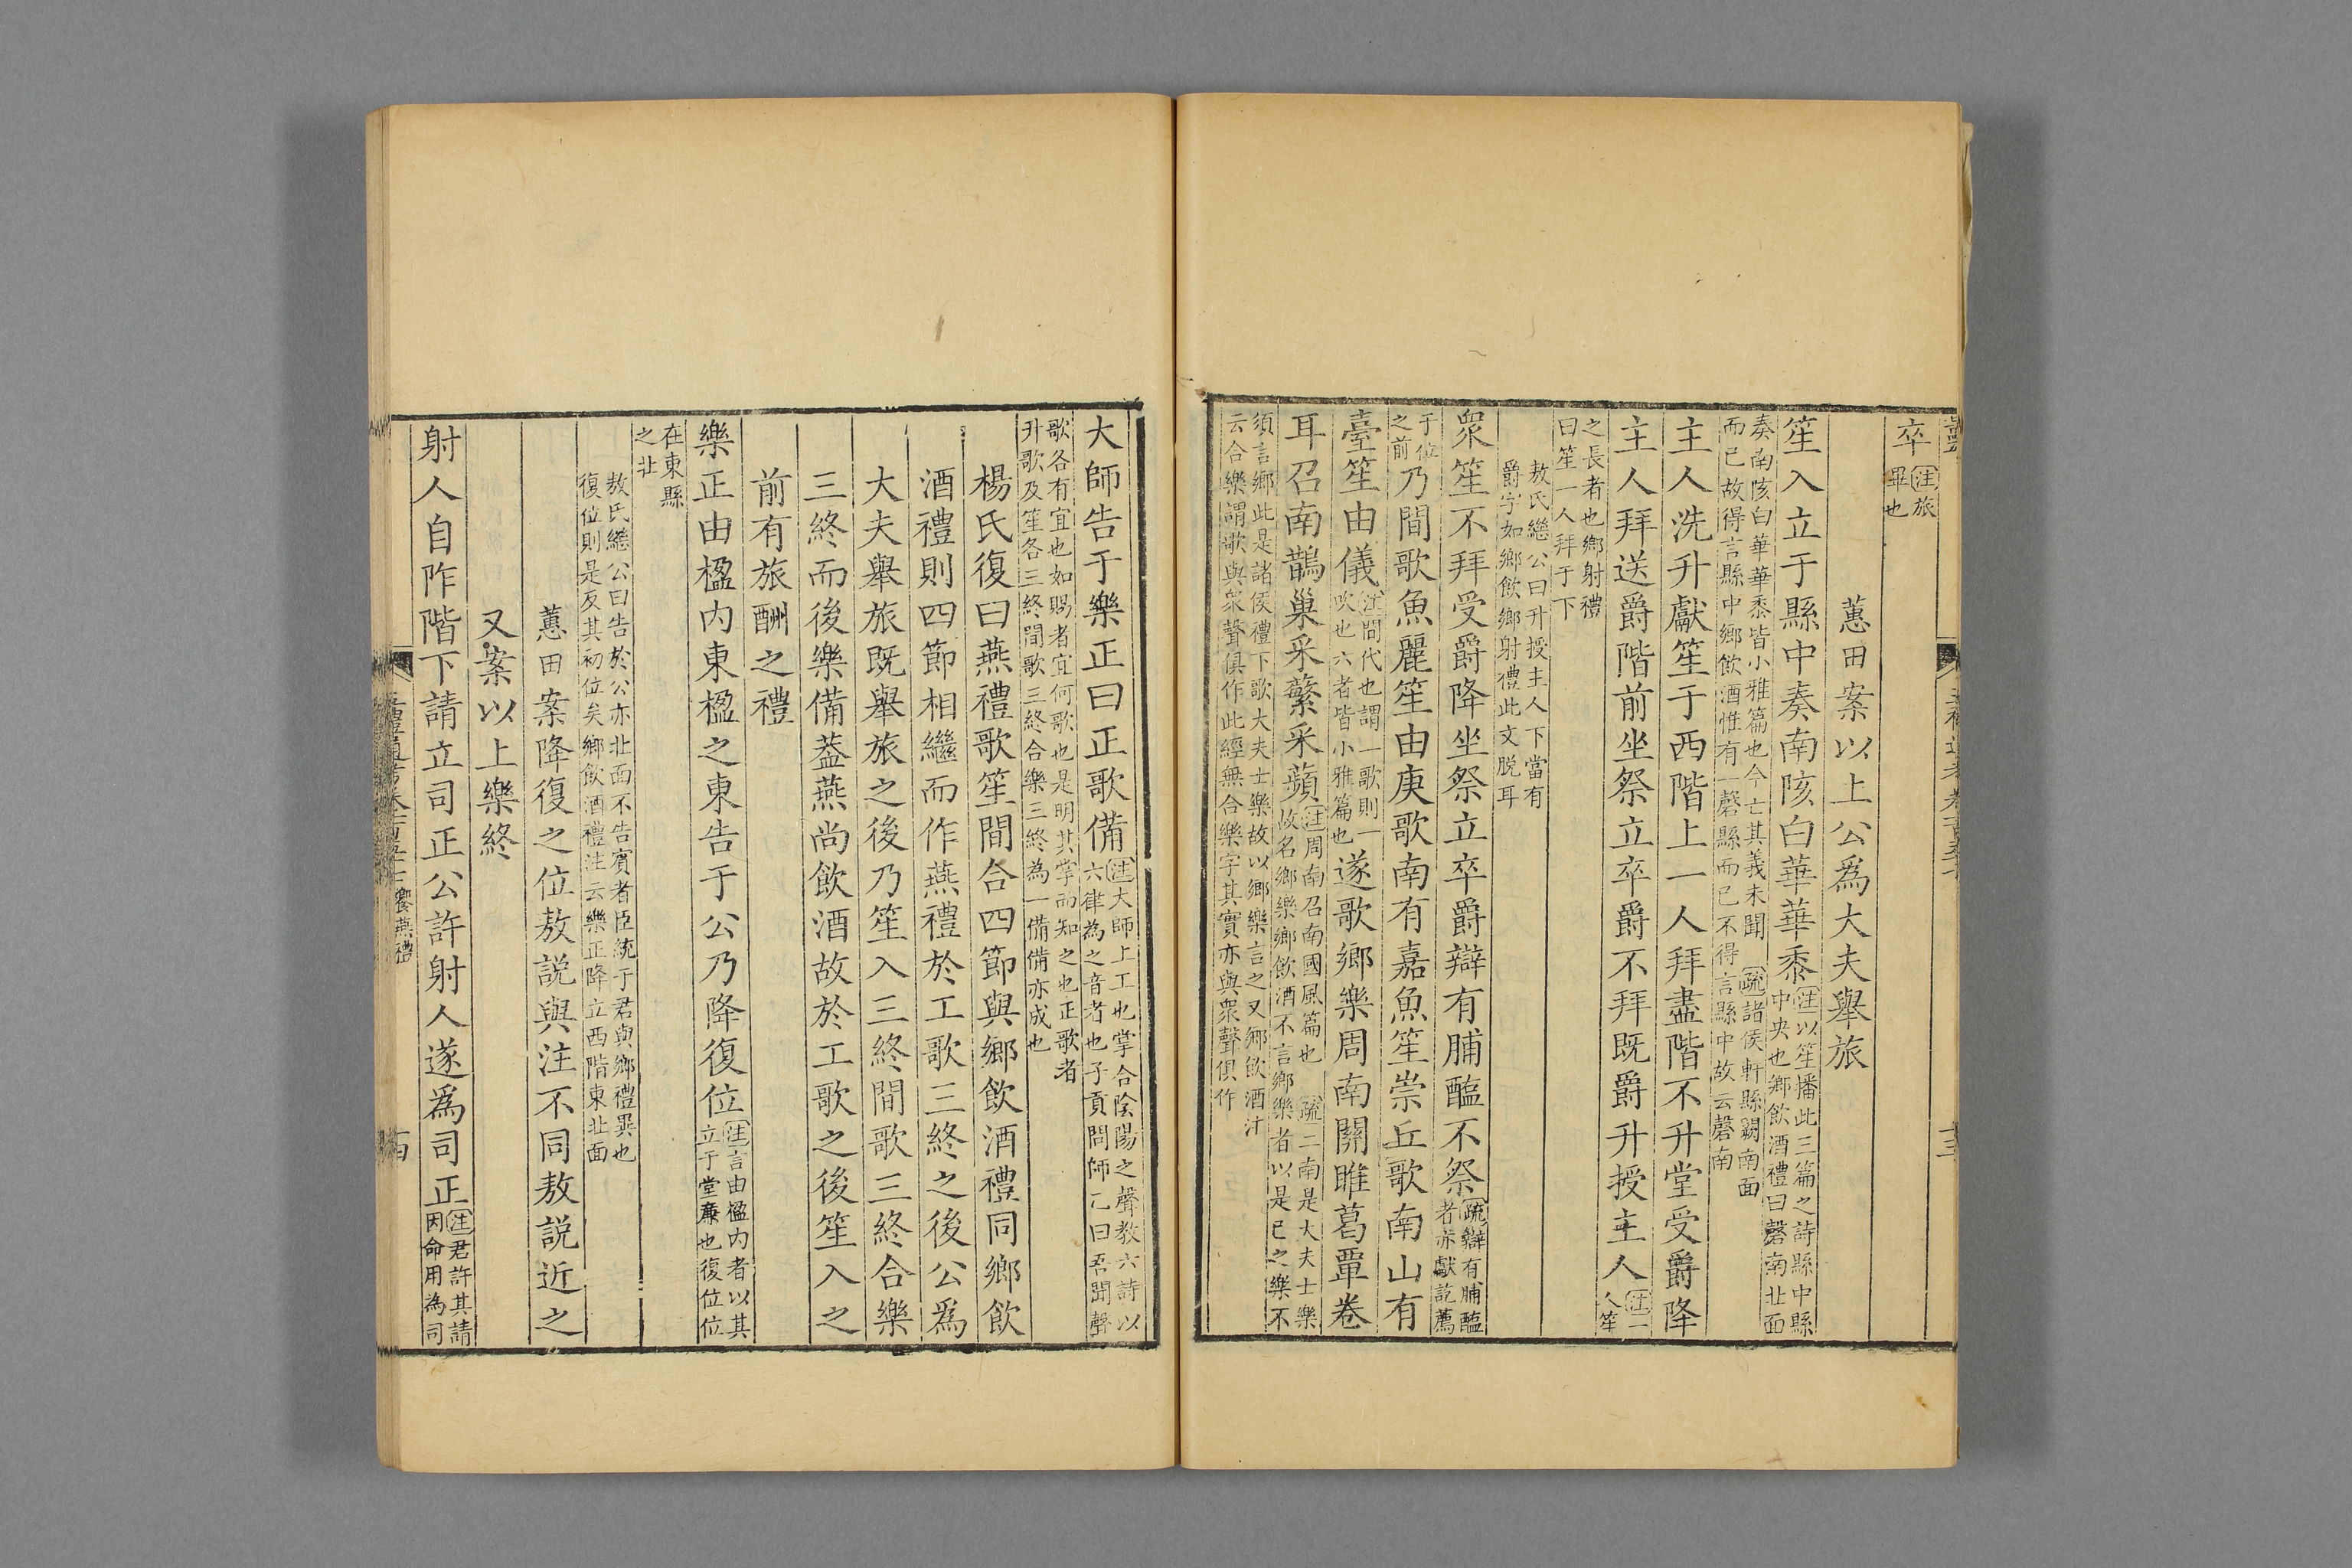 卒注旅畢也
蕙田案以上公爲大夫舉旅
笙入立于縣中奏南陔白華華黍注以笙播此三篇之詩縣中縣中央也鄉飲酒禮曰磬南北面
奏南陔白華華黍皆小雅篇也今亡其義未聞疏諸侯軒縣闕南面而已故得言縣中鄉飲酒惟有一磬縣而已不得言縣中故云磬南
主人洗升獻笙于西階上一人拜盡階不升堂受爵降
主人拜送爵階前坐祭立卒爵不拜既爵升授主人注一人笙
之長者也鄉射禮曰笙一人拜于下
敖氏繼公曰升授主人下當有爵字如鄉飲鄉射禮此文脱耳
衆笙不拜受爵降坐祭立卒爵辯有脯醢不祭疏辯有脯醢者亦獻訖薦
于位之前乃間歌魚麗笙由庚歌南有嘉魚笙崇丘歌南山有
臺笙由儀注間代也謂一歌則一吹也六者皆小雅篇也遂歌鄉樂周南關雎葛覃卷
耳召南鵲巢采蘩采蘋注周南召南國風篇也疏二南是大夫士樂故名鄉樂鄉飲酒不言鄉樂者以是己之樂不
須言鄉此是諸侯禮下歌大夫士樂故以鄉樂言之又鄉飲酒注云合樂謂歌與衆聲俱作此經無合樂字其實亦與衆聲俱作
大師告于樂正曰正歌備注大師上工也掌合陰陽之聲教六詩以六律為之音者也子貢問師乙曰吾聞聲
歌各有宜也如賜者宜何歌也是明其掌而知之也正歌者升歌及笙各三終間歌三終合樂三終為一備備亦成也
楊氏復曰燕禮歌笙間合四節與鄉飲酒禮同鄉飲
酒禮則四節相繼而作燕禮於工歌三終之後公爲
大夫舉旅既舉旅之後乃笙入三終間歌三終合樂
三終而後樂備葢燕尚飲酒故於工歌之後笙入之
前有旅酬之禮
樂正由楹内東楹之東告于公乃降復位注言由楹内者以其立于堂亷也復位位
在東縣之北
敖氏繼公曰告於公亦北面不告賓者臣統于君與鄉禮異也復位則是反其初位矣鄉飲酒禮注云樂正降立西階東北面
蕙田案降復之位敖説與注不同敖説近之
又案以上樂終
射人自阼階下請立司正公許射人遂爲司正注君許其請因命用為司